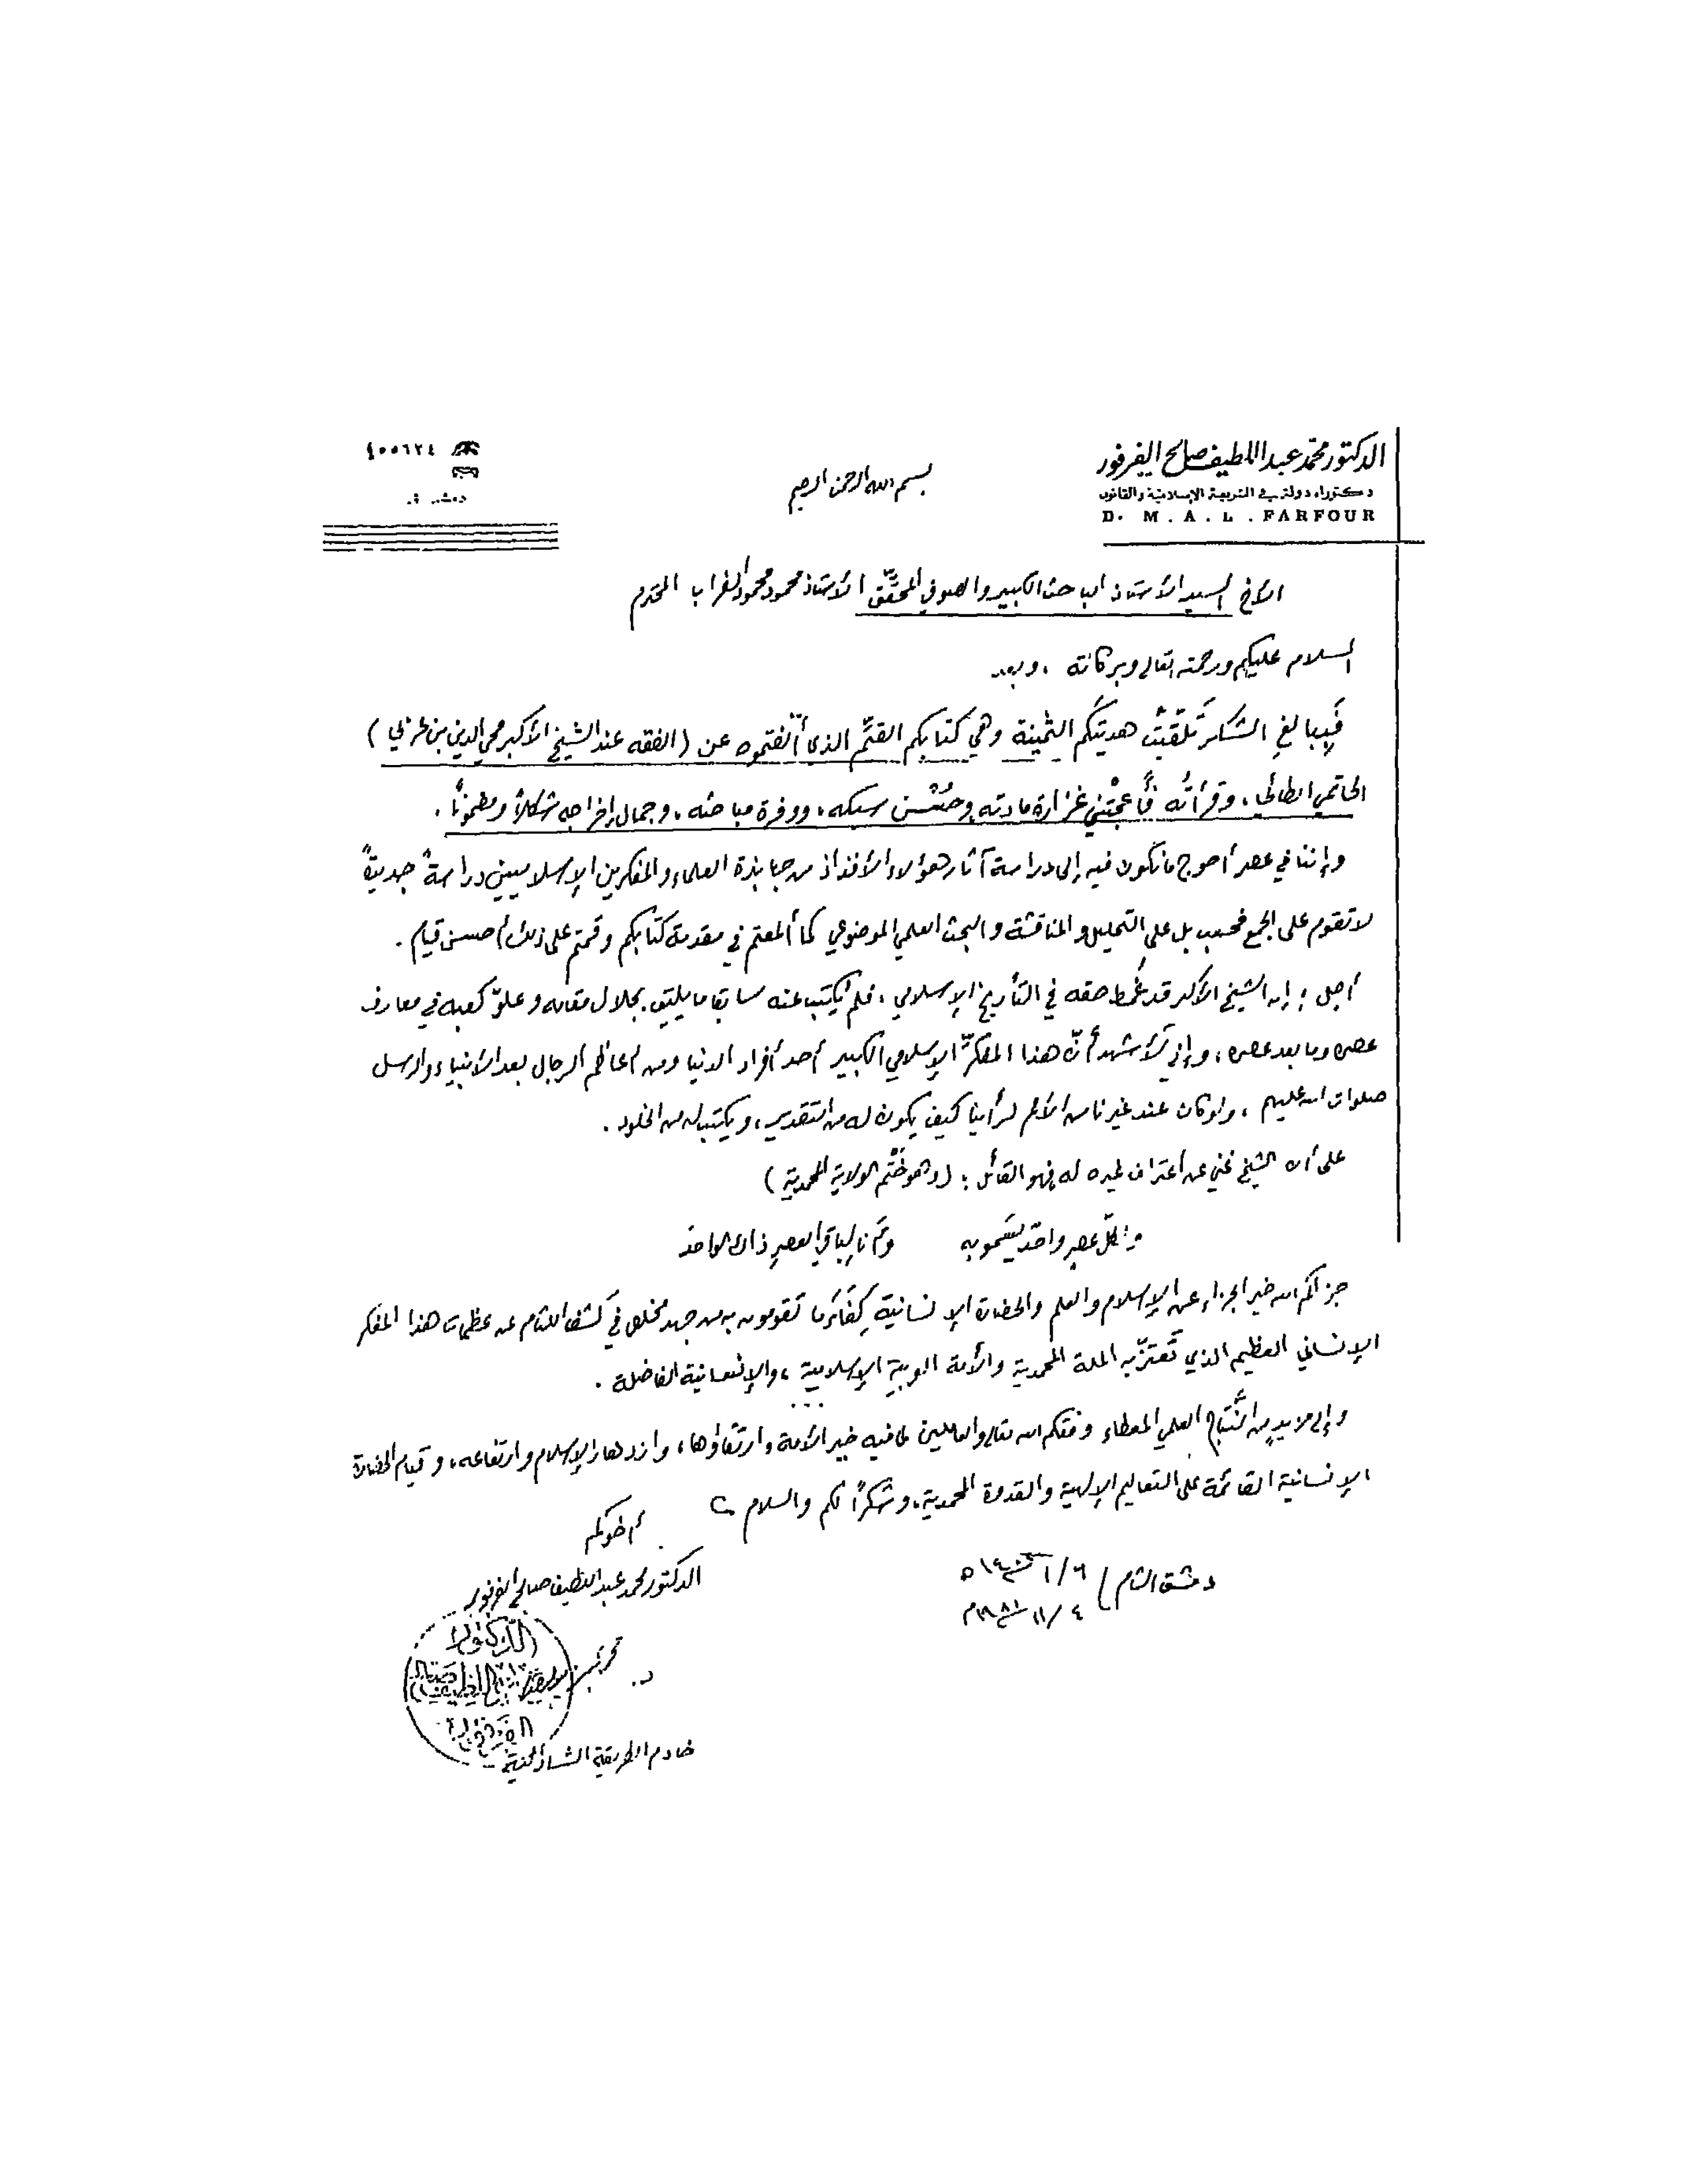 الدكتور محمد عبد اللطيف صالح الفرفور
دكتوراه دولة في الشريعة الإسلامية والقانون
D. M. A. L. FARFOUR
٤٥٥٦٢٤
دمشق
بسم الله الرحمن الرحيم
الأخ السيد الأستاذ الباحث الكبير والصوفي المحقّق الأستاذ محمود محمود الغراب المحترم
السلام عليكم ورحمته تعالى وبركاته ، وبعد
فَبِبالغِ الشكر تلقّيتُ هديتكم الثمينة وهي كتابكم القيّم الذي ألّفتموه عن (الفقه عند الشيخ الأكبر محي الدين بن عربي)
الحاتمي الطائي ، وقرأتُه فأعجبَتْني غزارة مادته وحُسْن سبكه ، ووفرة مباحثه ، وجمال إخراجه شكلاً ومضموناً .
وإننا في عصر أحوج ما نكون فيه إلى دراسة آثار هؤلاء الأفذاذ من جهابذة العلماء والمفكرين الإسلاميين دراسةً جديةً
لا تقوم على الجمع فحسب بل على التحليل والمناقشة والبحث العلمي الموضوعي كما ألمعتم في مقدمة كتابكم وقمتم على ذلك أحسن قيام .
أجل ؛ إن الشيخ الأكبر قد غُمط حقه في التأريخ الإسلامي ، فلم يُكتب عنه سابقا ما يليق بجلال مقامه وعلوّ كعبه في معارف
عصره وما بعد عصره ، وإني لأشهد أنّ هذا المفكّر الإسلامي الكبير أحد أفراد الدنيا ومن أعاظم الرجال بعد الأنبياء والرسل
صلوات الله عليهم ، ولو كان عند غيرنا من الأمم لرأينا كيف يكون له من التقدير ، ويكتب له من الخلود .
على أن الشيخ غني عن اعتراف غيره له فهو القائل : (وهو خَتْم الولاية المحمدية)
في كلّ عصرٍ واحدٌ يسمو به وأنا لباقي العصرِ ذاك الواحدُ
جزاكم الله خير الجزاء عن الإسلام والعلم والحضارة الإنسانية كِفاءَ ما تقومون به من جهد مخلص في كشف اللثام عن عظمات هذا المفكر
الإنساني العظيم الذي تعتزّ به الملة المحمدية والأمة العربية الإسلامية ، والإنسانية الفاضلة .
وإلى مزيدٍ من النّتاج العلمي المعطاء وفقكم الله تعالى والعاملين لما فيه خير الأمة وارتقاؤها ، وازدهار الإسلام وارتفاعه ، وقيام الحضارة
الإنسانية القائمة على التعاليم الإلهية والقدوة المحمدية ، وشكراً لكم والسلام
أخوكم
الدكتور محمد عبد اللطيف صالح الفرفور
دمشق الشام
١٤٠٢/١/٦هـ
١٩٨١/١١/٤م
د.
الدكتور
الفرفور
خادم الطريقة الشاذلية